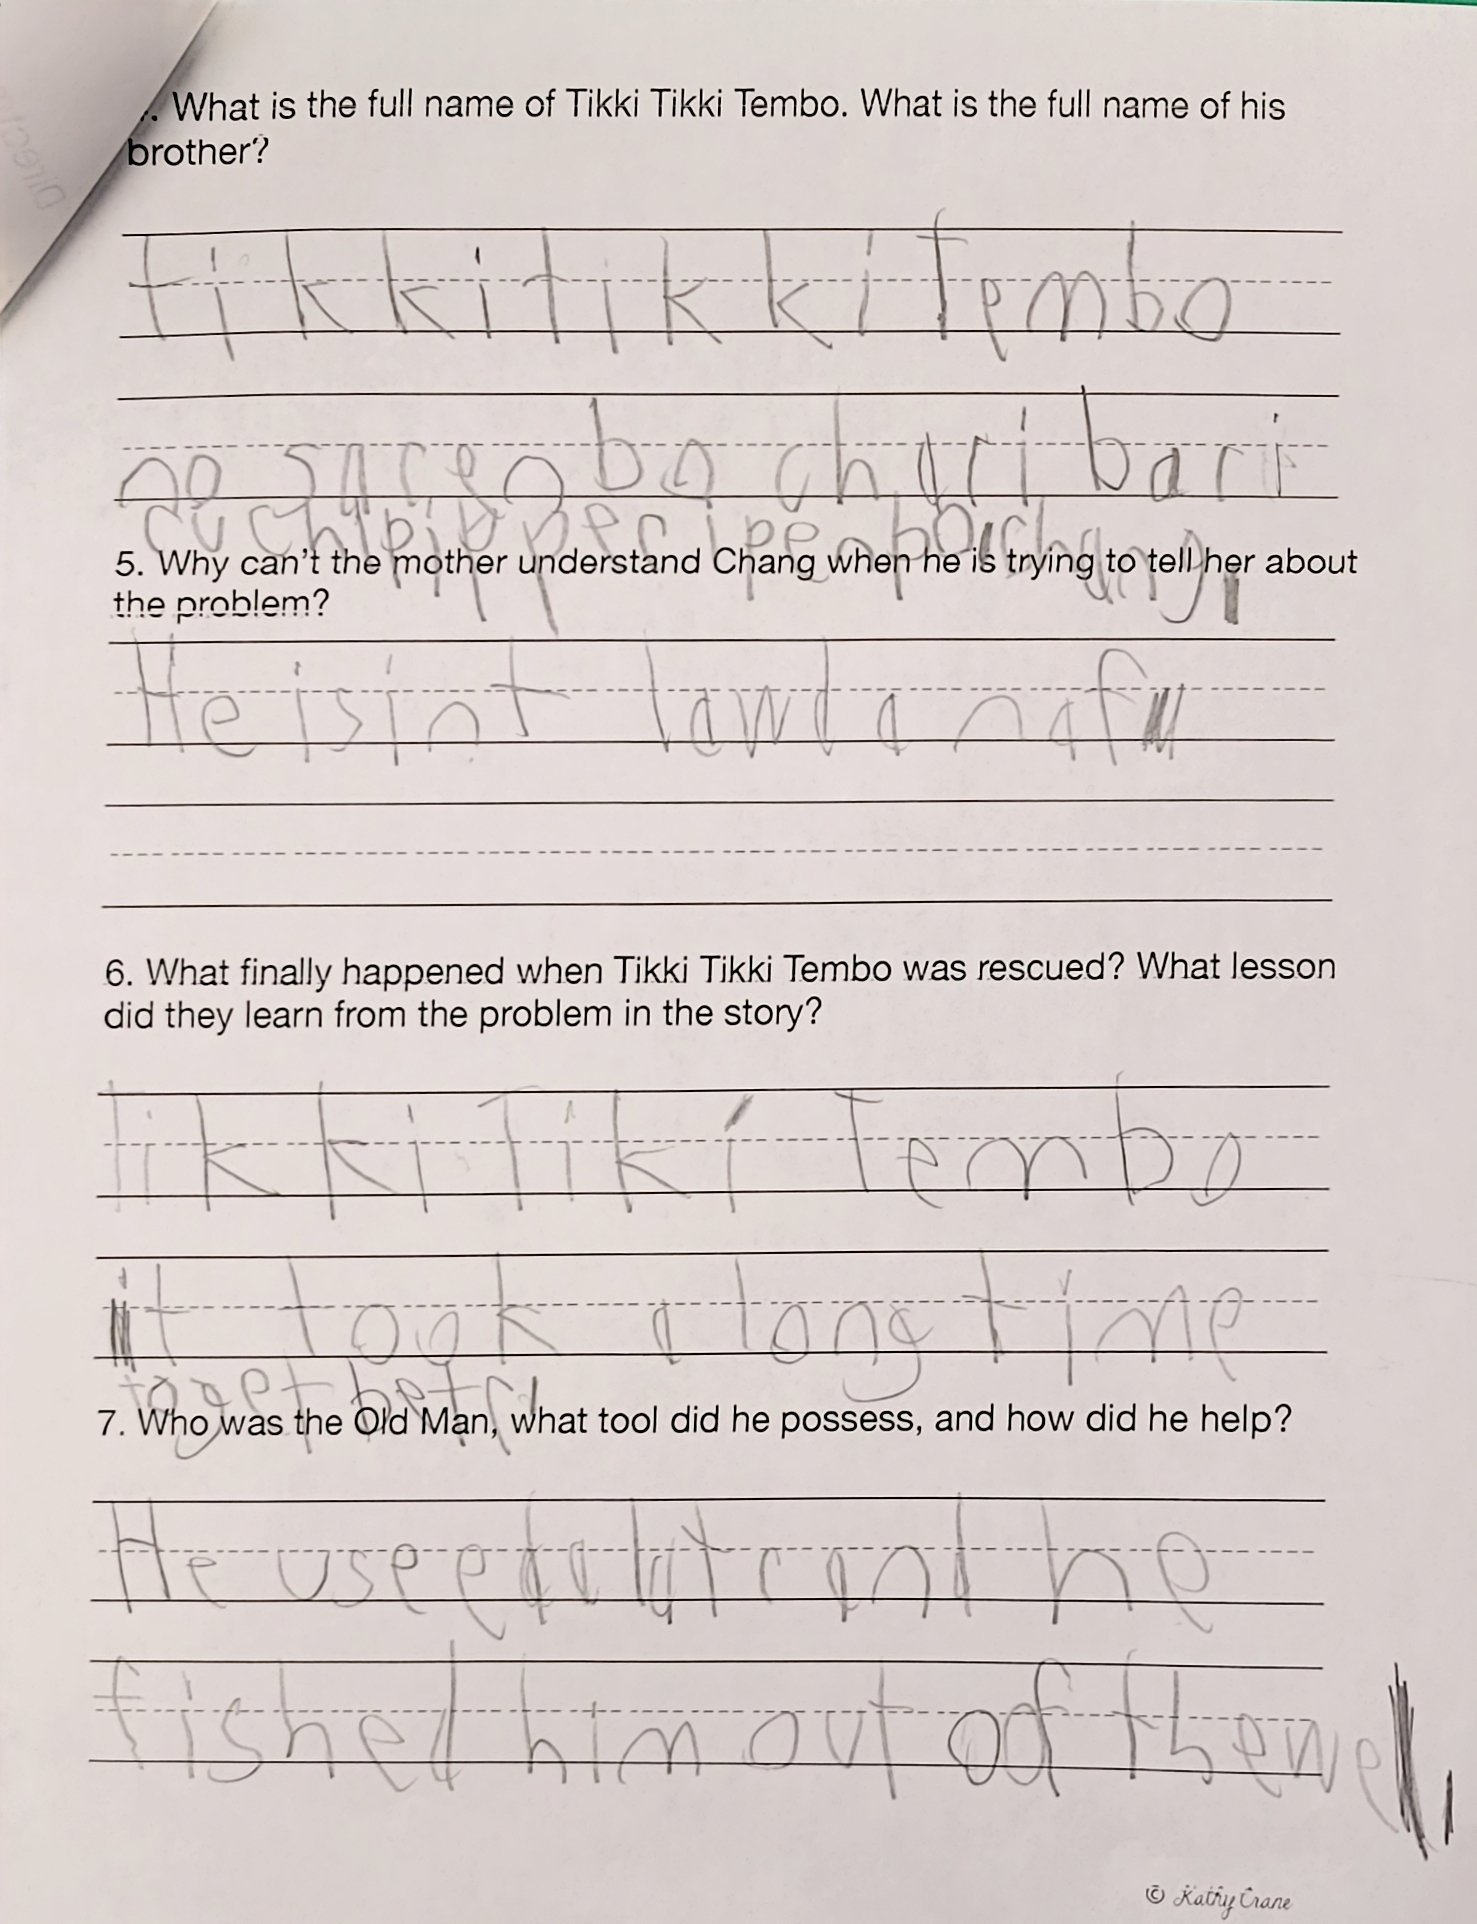 . What is the full name of Tikki Tikki Tembo. What is the full name of his
brother?
tikkitikki Tembo
no sarenbo chari bari
cuchipip peripenbo chang
5. Why can't the mother understand Chang when he is trying to tell her about
the problem?
He isint lawd anaf
6. What finally happened when Tikki Tikki Tembo was rescued? What lesson
did they learn from the problem in the story?
Tikki Tiki Tembo
it took a long time
toget betr
7. Who was the Old Man, what tool did he possess, and how did he help?
He useed a latr and he
fished him out of the well.
© Kathy Crane